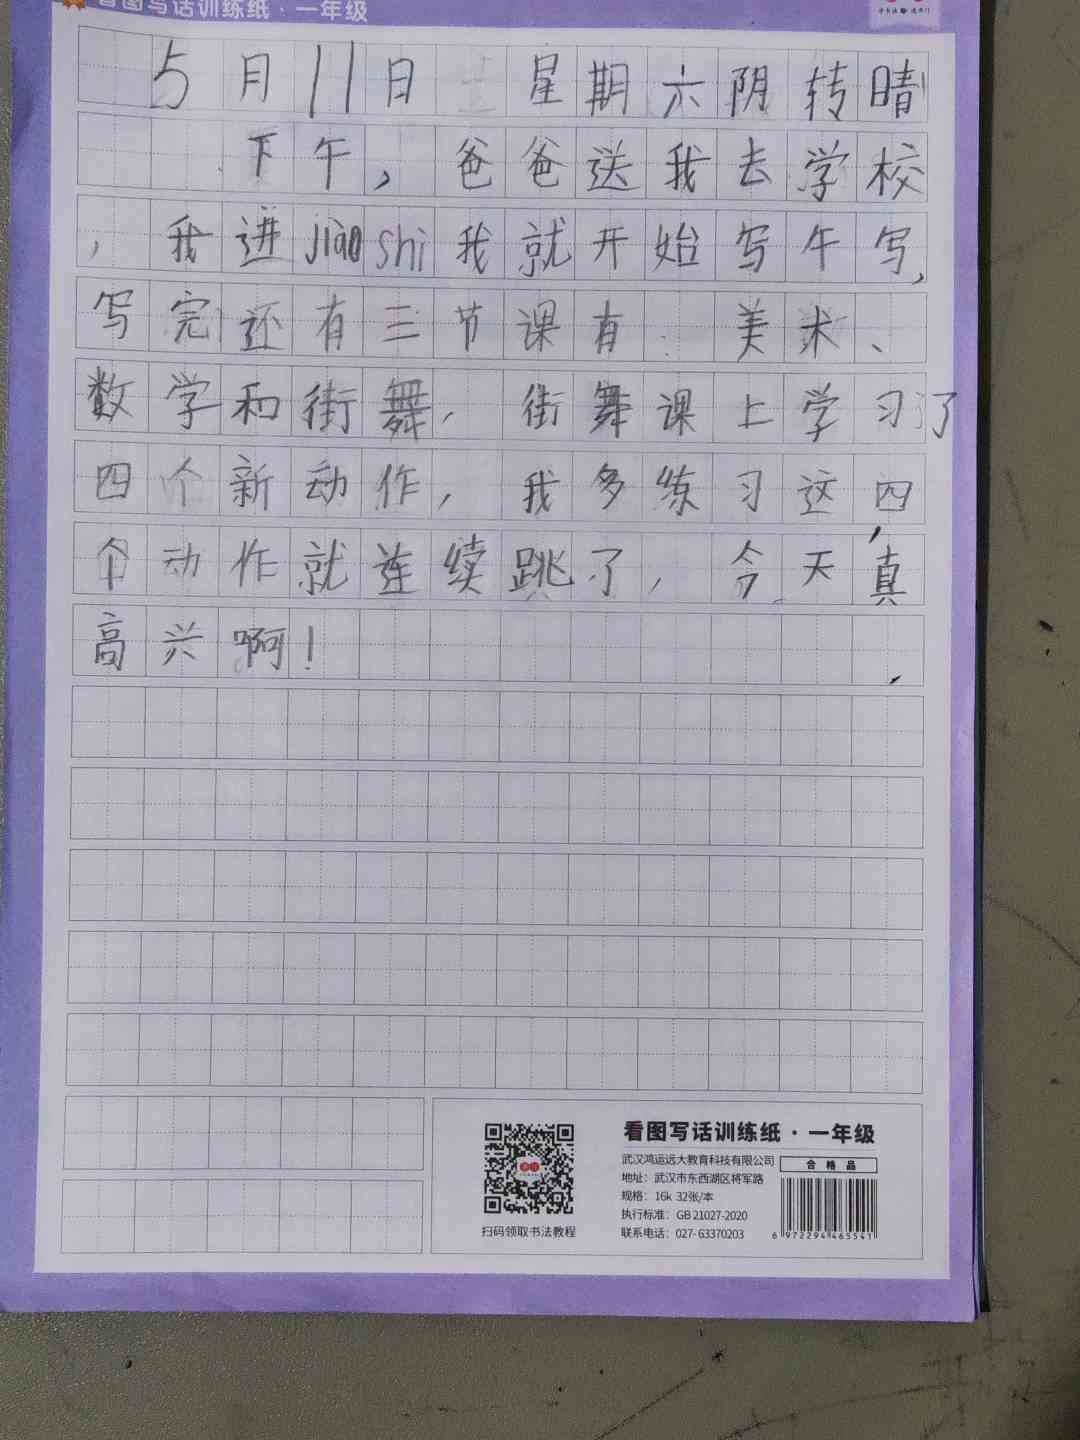 看图写话训练纸·一年级
5月11日 星期六阴转晴
下午，爸爸送我去学校
，我进jiàoshi我就开始写午写，
写完还有三节课有 美术、
数学和街舞， 街舞课上学习了
四个新动作， 我多练习这四
个动作就连续跳了， 今天真
高兴啊！
看图写话训练纸·一年级
武汉鸿运远大教育科技有限公司
合格品
地址：武汉市东西湖区将军路
规格：16k 32张/本
执行标准：GB 21027-2020
联系电话：027-63370203
6 972294 465541
扫码领取书法教程